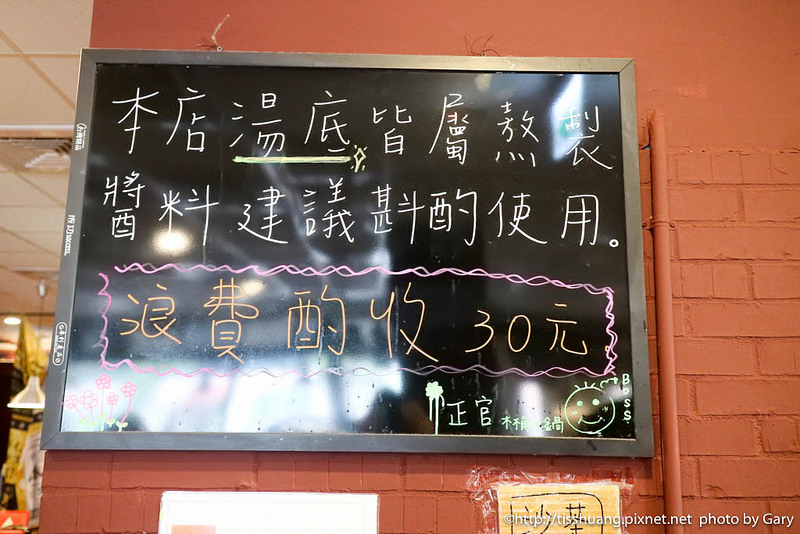 本店湯底皆屬熬製
醬料建議斟酌使用。
浪費酌收30元
正官木桶鍋
Boss
©http://tisshuang.pixnet.net photo by Gary